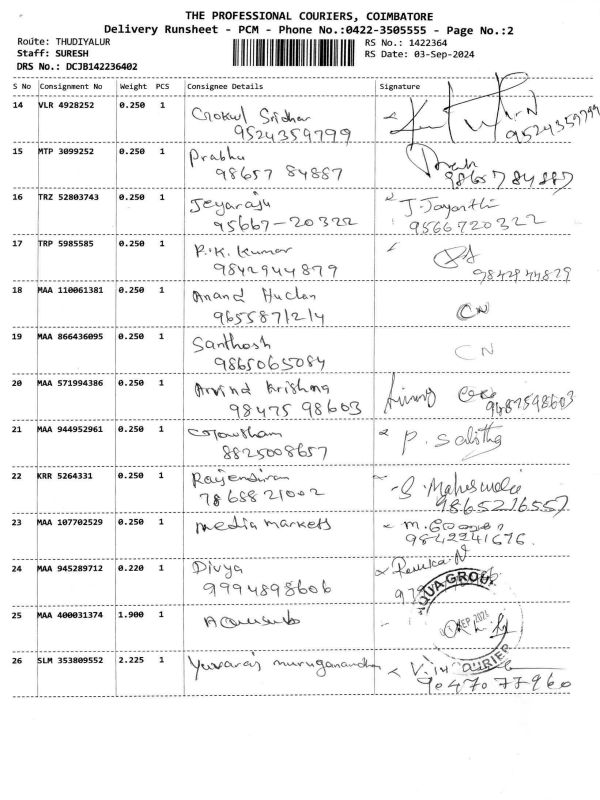 THE PROFESSIONAL COURIERS, COIMBATORE
Delivery Runsheet - PCM - Phone No.:0422-3505555 - Page No.:2
Route: THUDIYALUR
Staff: SURESH
DRS No.: DCJB142236402
RS No.: 1422364
RS Date: 03-Sep-2024
S No Consignment No Weight PCS Consignee Details Signature
14 VLR 4928252 0.250 1 Gokul Sridhar
9524359799 9524359799
15 MTP 3099252 0.250 1 Prabhu
98657 84887 9865784887
16 TRZ 52803743 0.250 1 Jeyaraju J. Jayanthi
95667-20322 9566720322
17 TRP 5985585 0.250 1 P.K. Kumar
9842944879 9842944879
18 MAA 110061381 0.250 1 Anand
9655871214 CN
19 MAA 866436095 0.250 1 Santhosh
9865065084 CN
20 MAA 571994386 0.250 1 Arvind Krishna
98475 98603
21 MAA 944952961 0.250 1 Gowtham P. Salitha
8825008657
22 KRR 5264331 0.250 1 Rajendiran S. Maheswari
7868821002 9865216557
23 MAA 107702529 0.250 1 media markets
9842241676.
24 MAA 945289712 0.220 1 Divya Renuka.N
9994898606
QUA GROUP
25 MAA 400031374 1.900 1
SEP 2024
COURIER
26 SLM 353809552 2.225 1 Yuvaraj muruganandha
9047077960